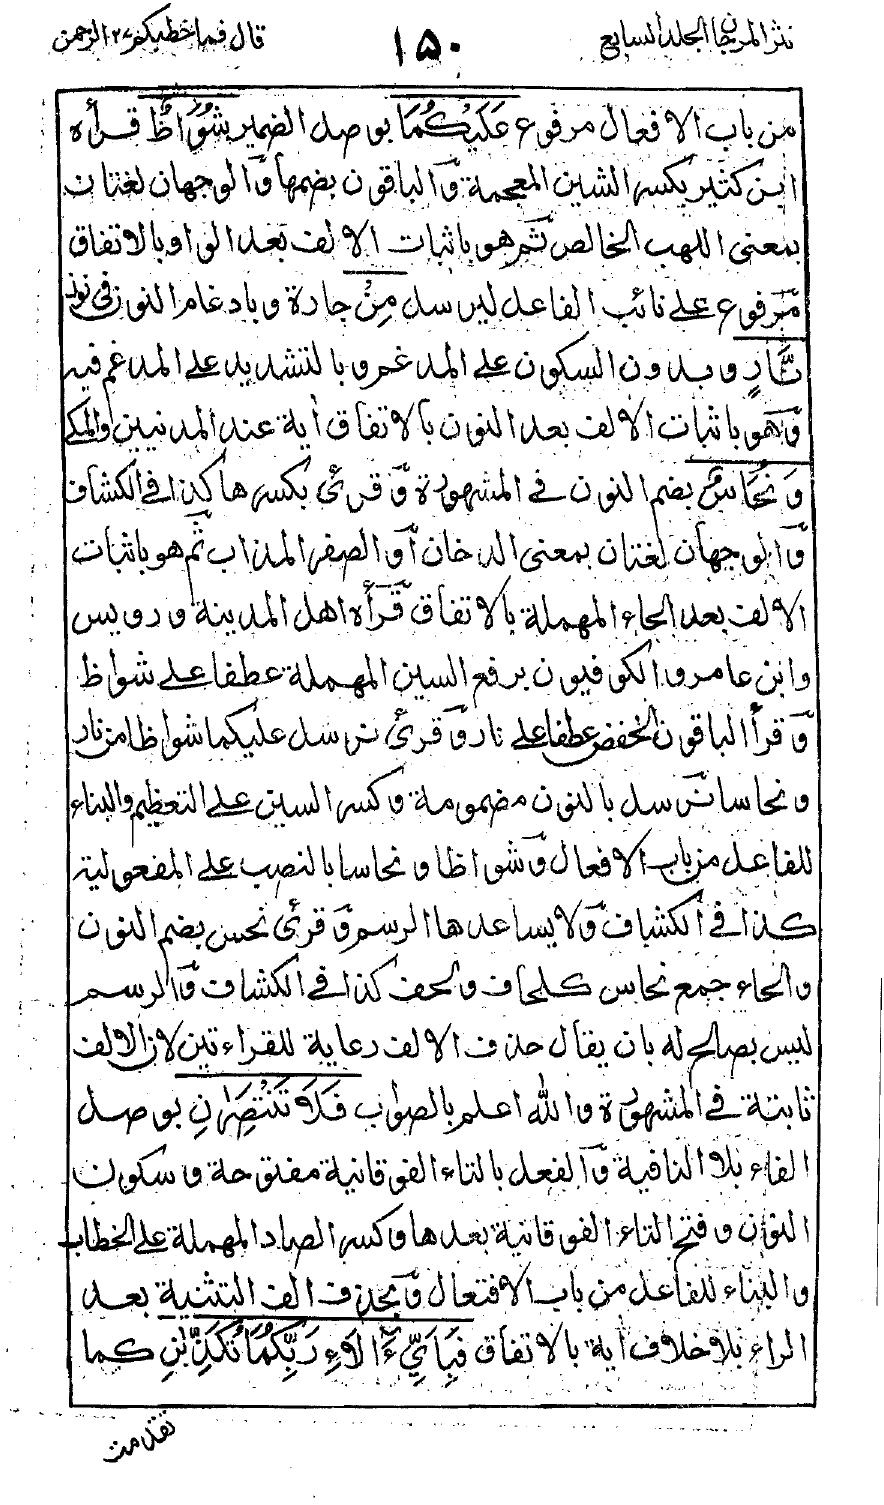 نثر المرجان الجلد السابع
١٥٠
قال فما خطبكم ٢٧ الرحمن
من باب الافعال مرفوع عَلَيْكُمَا بوصل الضمير شُوَاظٌ قرأه
ابن كثير بكسر الشين المعجمة وٓالباقون بضمها وٓالوجهان لغتان
بمعنى اللهب الخالص ثم هو باثبات الالف بعد الواو بالاتفاق
مرفوع على نائب الفاعل ليرسل مِنْ جارة وبادغام النون في نون
نَّارٍ وبدون السكون على المدغم وبالتشديد على المدغم فيه
وٓهو باثبات الالف بعد النون بالاتفاق أية عند المدنيين والمكي
وَنُحَاسٌ بضم النون في المشهورة وٓقرئ بكسرها كذا في الكشاف
وٓالوجهان لغتان بمعنى الدخان أو الصفر المذاب ثم هو باثبات
الالف بعد الحاء المهملة بالاتفاق قرأه اهل المدينة ورويس
وابن عامر والكوفيون برفع السين المهملة عطفا على شواظ
وٓقرأ الباقون بالخفض عطفا على نار وٓقرئ نرسل عليكما شواظا من نار
ونحاسا نرسل بالنون مضمومة وكسر السين على التعظيم والبناء
للفاعل من باب الافعال وٓشواظا ونحاسا بالنصب على المفعولية
كذا في الكشاف وٓلا يساعدها الرسم وٓقرئ نحس بضم النون
والحاء جمع نحاس كلحاف ولحف كذا في الكشاف وٓالرسم
ليس بصالح له بان يقال حذف الالف رعاية للقراءتين لان الالف
ثابتة في المشهورة والله اعلم بالصواب فَلَا تَنْتَصِرَانِ بوصل
الفاء بلا النافية وٓالفعل بالتاء الفوقانية مفتوحة وسكون
النون وفتح التاء الفوقانية بعدها وكسر الصاد المهملة على الخطاب
والبناء للفاعل من باب الافتعال وٓبحذف الف التثنية بعد
الراء بلا خلاف أية بالاتفاق فَبِاَيِّ ءَالَاءِ رَبِّكُمَا تُكَذِّبٰنِ كما
تقدمت